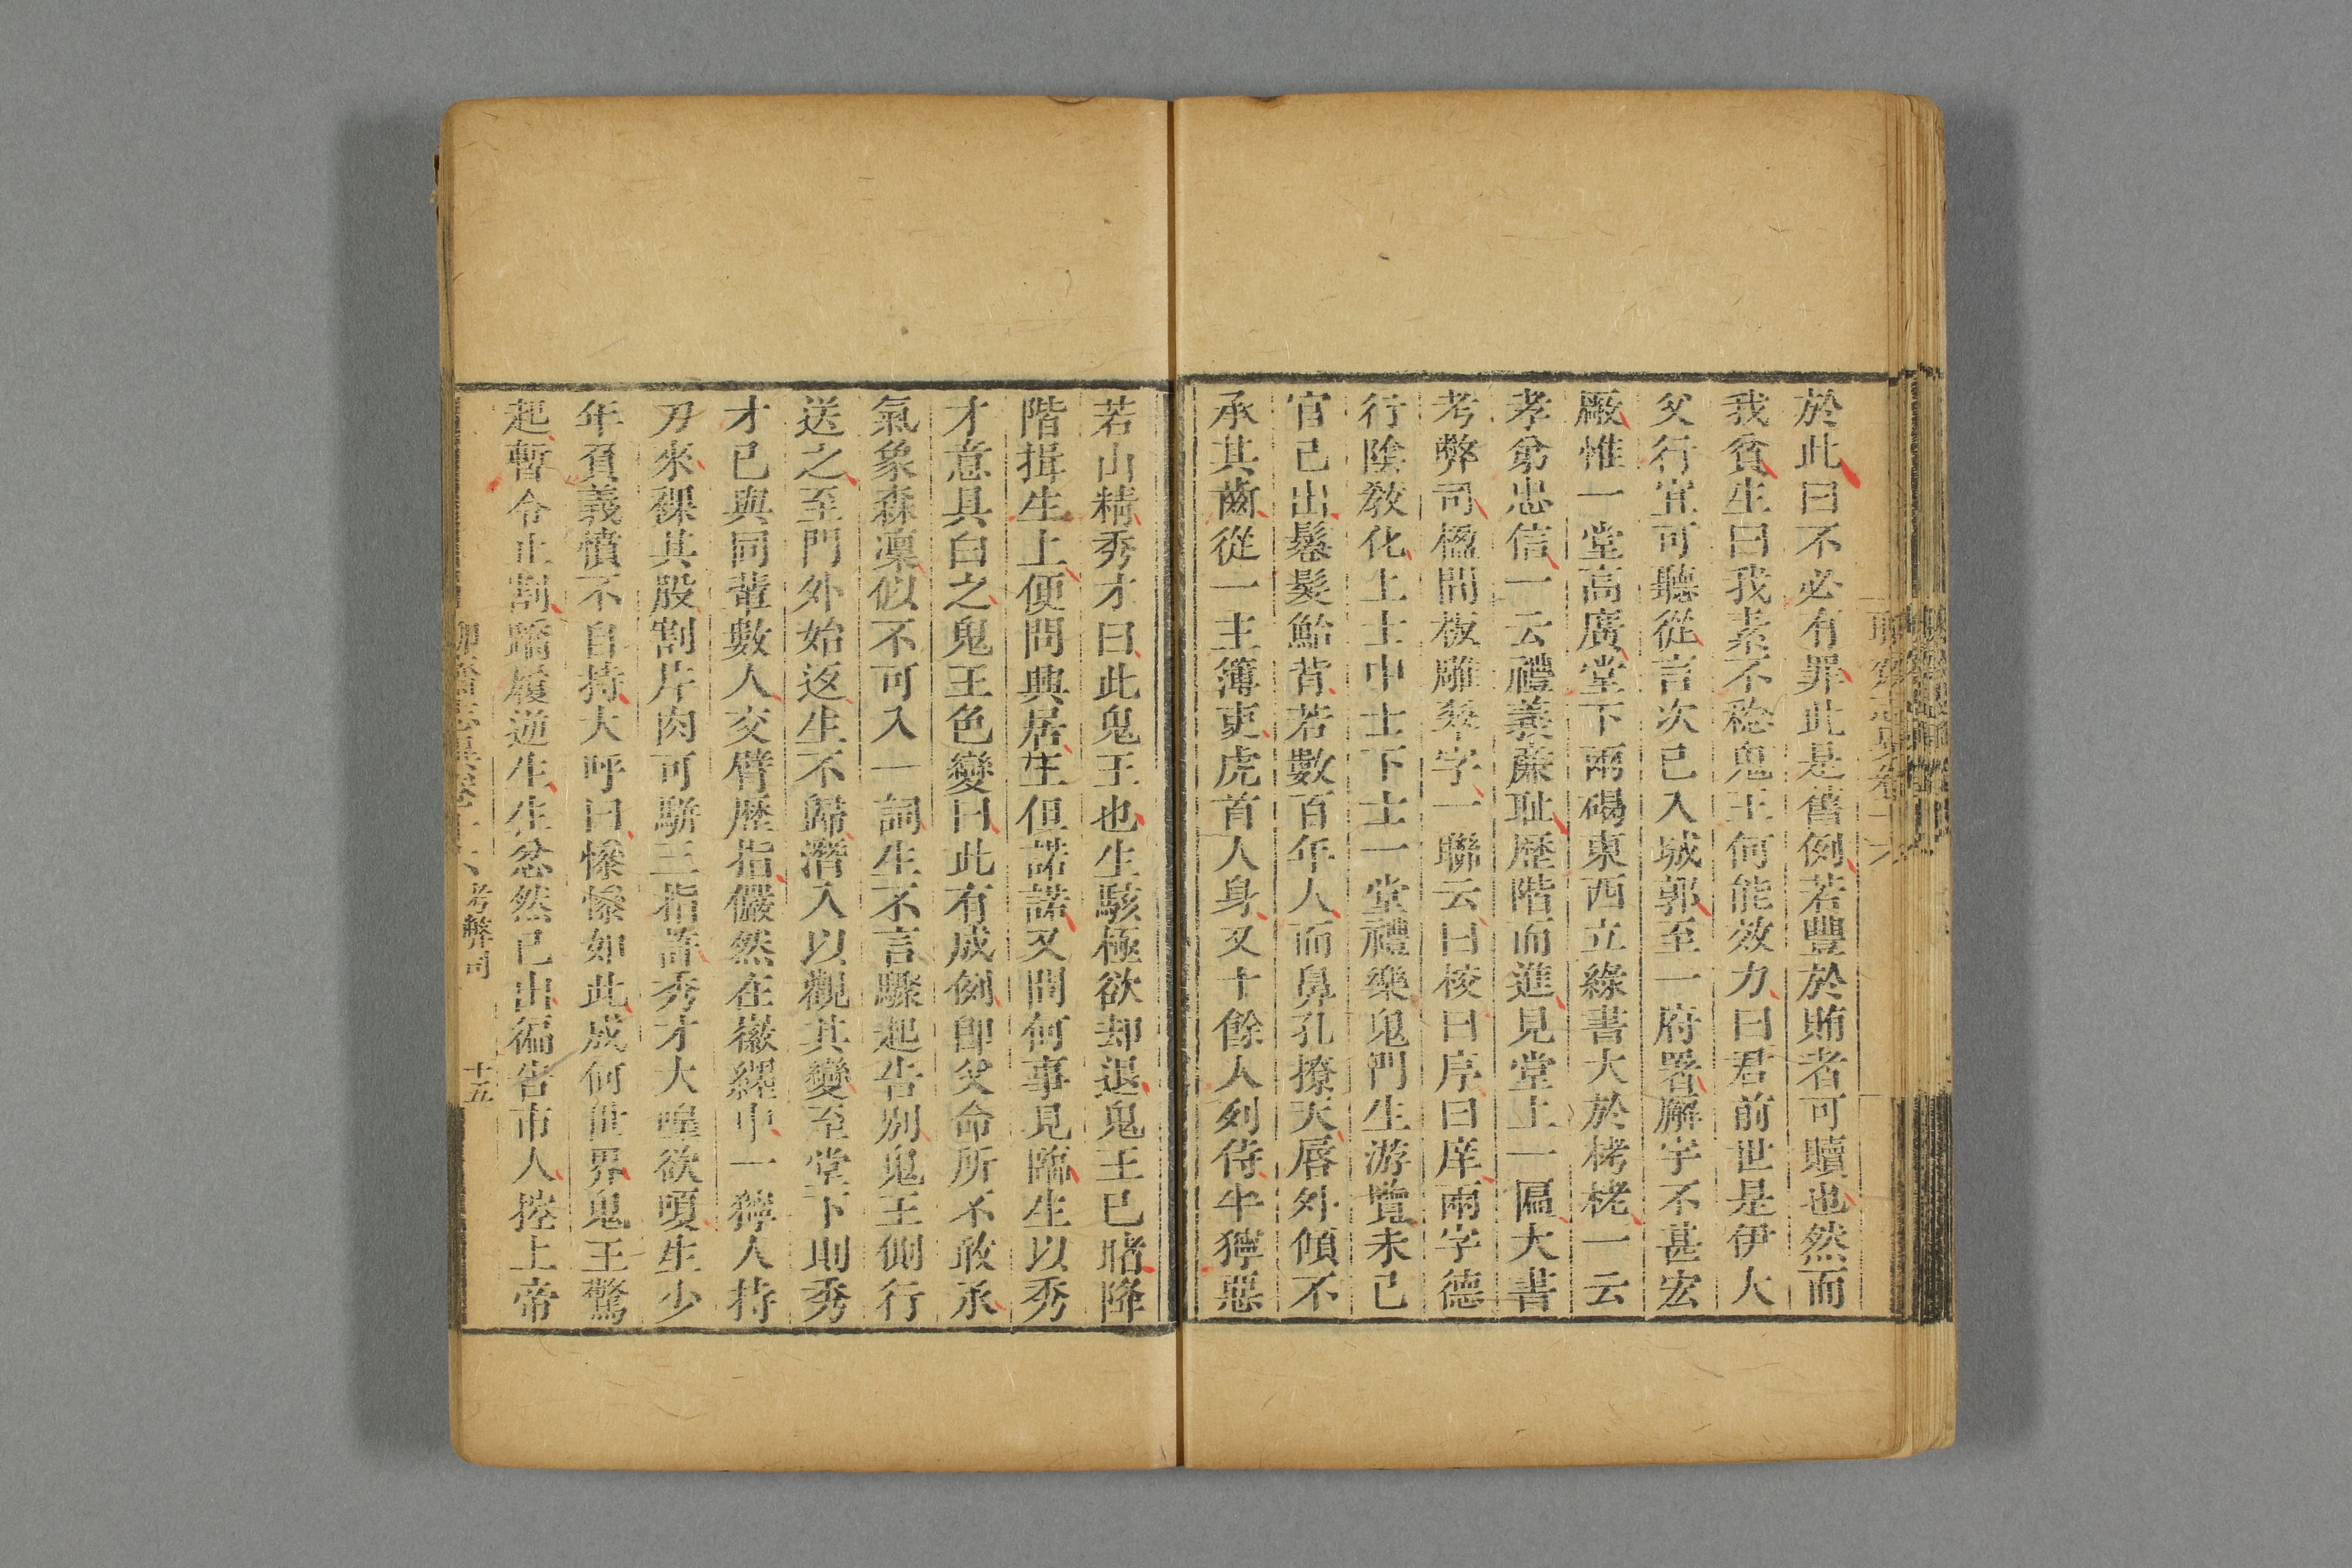 於此曰不必有罪此是舊例若豐於賄者可贖也然而
我貧生曰我素不稔鬼王何能效力曰君前世是伊大
父行宜可聽從言次已入城郭至一府署廨宇不甚宏
厰惟一堂高廣堂下兩碣東西立綠書大於栲栳一云
孝弟忠信一云禮義廉耻歷階而進見堂上一匾大書
考弊司楹間板雕翠字一聯云曰校曰序曰庠兩字德
行陰敎化上士中士下士一堂禮樂鬼門生游覽未已
官已出鬈髮鮐背若數百年人而鼻孔撩天唇外傾不
承其齒從一主簿吏虎首人身又十餘人列侍半獰惡
若山精秀才曰此鬼王也生駭極欲却退鬼王已睹降
階揖生上便問興居生但諾諾又問何事見臨生以秀
才意具白之鬼王色變曰此有成例即父命所不敢承
氣象森凜似不可入一詞生不言驟起告別鬼王側行
送之至門外始返生不歸潛入以觀其變至堂下則秀
才已與同輩數人交臂歷指儼然在徽纆中一獰人持
刀來裸其股割片肉可騈三指許秀才大嘷欲嗄生少
年負義憤不自持大呼曰慘慘如此成何世界鬼王驚
起暫令止割蹻履逆生生忿然已出徧告市人控上帝
考弊司
十五